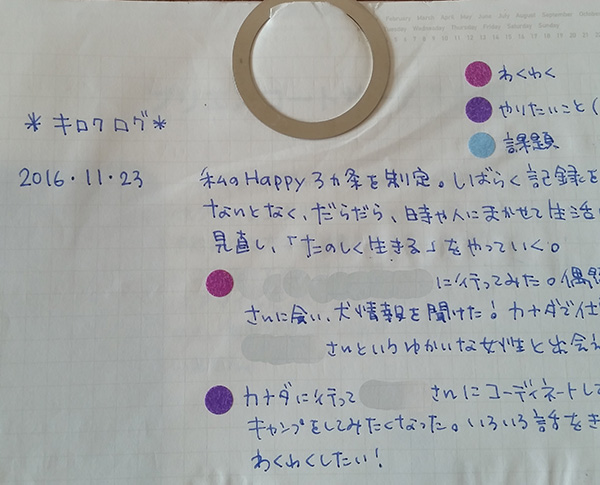 February March April May June July August September October
Tuesday Wednesday Thursday Friday Saturday Sunday
わくわく
やりたいこと(
＊キロクログ＊
課題
2016・11・23
私のHappy3カ条を制定。しばらく記録を
ないとなく、だらだら、時や人にまかせて生活
見直し、「たのしく生きる」をやっていく。
に行ってみた。偶
さんに会い、犬情報を聞けた！カナダで仕
さんというゆかいな女性と出会
カナダに行って さんにコーディネートして
キャンプをしてみたくなった。いろいろ話をき
わくわくしたい！